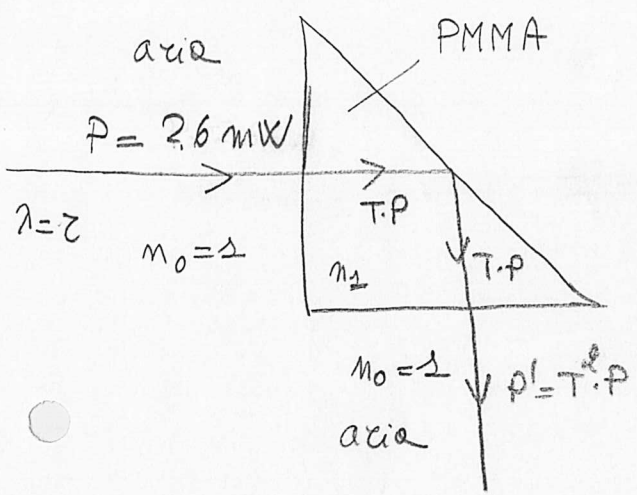 aria
PMMA
P = 26 mW
T.P
λ=?
n₀=1
n₁
T.P
n₀=1
P'=T².P
aria